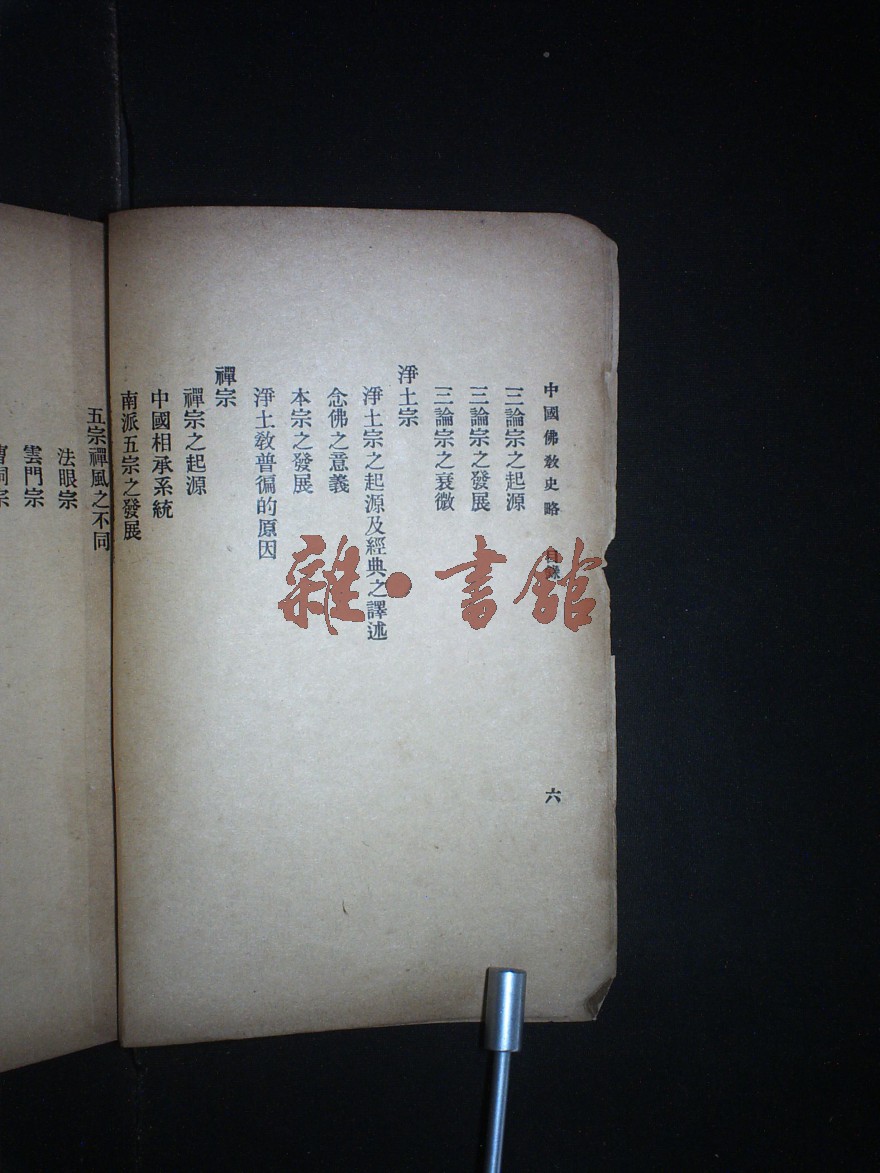 中國佛教史略 目錄
六
三論宗之起源
三論宗之發展
三論宗之衰微
淨土宗
淨土宗之起源及經典之譯述
念佛之意義
本宗之發展
淨土教普徧的原因
禪宗
禪宗之起源
中國相承系統
南派五宗之發展
五宗禪風之不同
法眼宗
雲門宗
曹洞宗
雜·書館